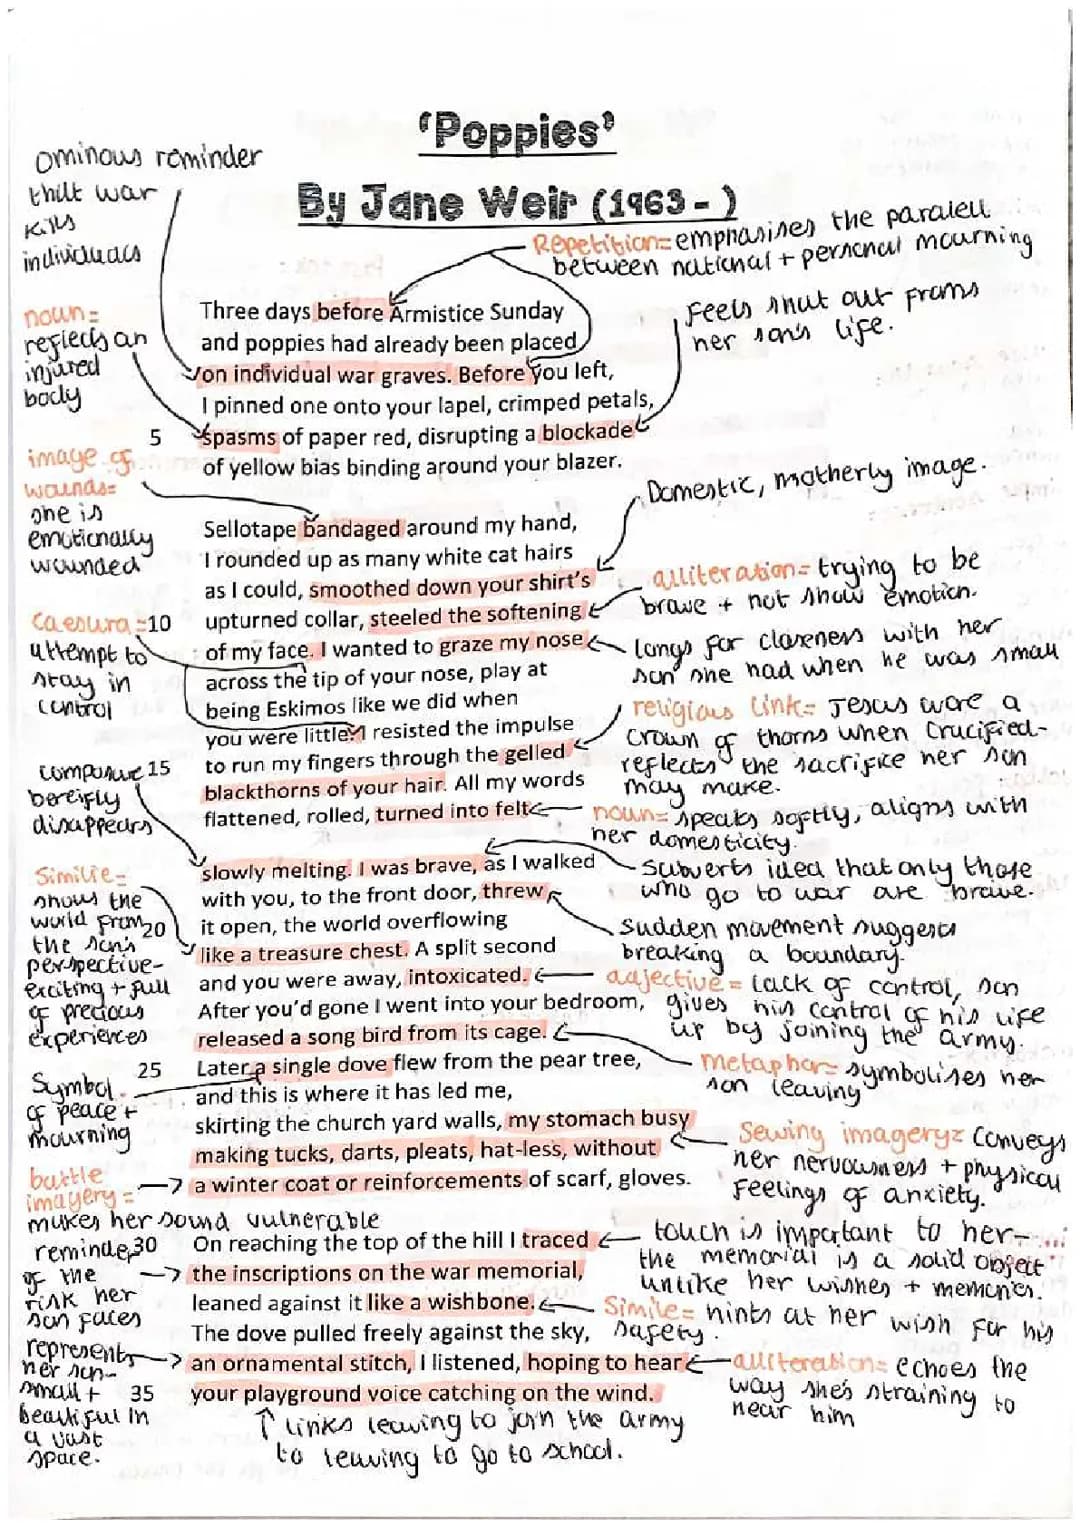 'Poppies'
By Jane Weir (1963 - )
ominous reminder
that war
kills
individuals
Repetition= emphasises the paralell
between national + personal mourning
Feels shut out from
her son's life.
noun=
reflects an
injured
body
Three days before Armistice Sunday
and poppies had already been placed
on individual war graves. Before you left,
I pinned one onto your lapel, crimped petals,
5 spasms of paper red, disrupting a blockade
of yellow bias binding around your blazer.
image of
wounds=
she is
emotionally
wounded
Domestic, motherly image.
Sellotape bandaged around my hand,
I rounded up as many white cat hairs
as I could, smoothed down your shirt's
10 upturned collar, steeled the softening
of my face. I wanted to graze my nose
across the tip of your nose, play at
being Eskimos like we did when
you were little. I resisted the impulse
15 to run my fingers through the gelled
blackthorns of your hair. All my words
flattened, rolled, turned into felt
alliteration= trying to be
brave + not show emotion.
Caesura=
attempt to
stay in
control
longs for closeness with her
son she had when he was small
religious link= Jesus wore a
crown of thorns when crucified-
reflects the sacrifice her son
may make.
composure
bereifly
disappears
noun= speaks softly, aligns with
her domesticity.
slowly melting. I was brave, as I walked
with you, to the front door, threw
20 it open, the world overflowing
like a treasure chest. A split second
and you were away, intoxicated.
After you'd gone I went into your bedroom,
released a song bird from its cage.
25 Later a single dove flew from the pear tree,
and this is where it has led me,
skirting the church yard walls, my stomach busy
making tucks, darts, pleats, hat-less, without
a winter coat or reinforcements of scarf, gloves.
Subverts idea that only those
who go to war are brave.
Similie=
shows the
world from
the son's
perspective-
exciting + full
of precious
experiences
Sudden movement suggests
breaking a boundary.
adjective= lack of control, son
gives his control of his life
up by joining the army.
metaphor= symbolises her
son leaving
Symbol
of peace +
mourning
Sewing imagery= conveys
her nervousness + physical
feelings of anxiety.
battle
imagery=
makes her sound vulnerable
30 On reaching the top of the hill I traced
the inscriptions on the war memorial,
leaned against it like a wishbone.
The dove pulled freely against the sky,
an ornamental stitch, I listened, hoping to hear
35 your playground voice catching on the wind.
reminder
of the
risk her
son faces
touch is important to her-
the memorial is a solid object
unlike her wishes + memories.
Simile= hints at her wish for his
safety.
represents
her son-
small +
beautiful in
a vast
space.
alliteration= echoes the
way she's straining to
hear him
links leaving to join the army
to leaving to go to school.